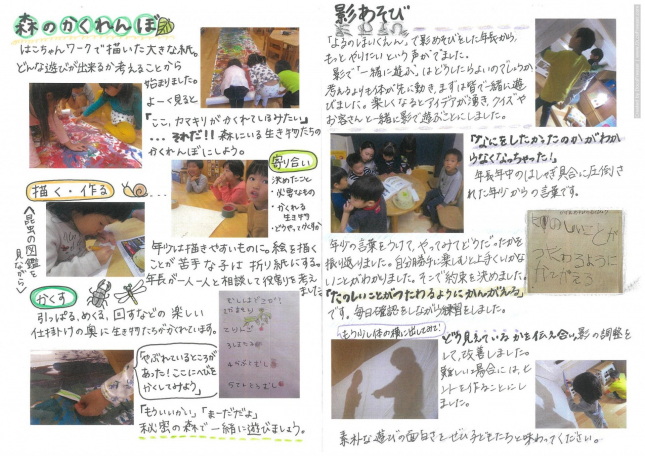 森のかくれんぼ
はこちゃんワークで描いた大きな紙。
どんな遊びが出来るか考えることから
始まりました。
よーく見ると
「ここ、カマキリがかくれてるみたい」
・・・それだ!! 森にいる生き物たちの
かくれんぼにしよう。
寄り合い
決めたこと
・必要なもの
・かくれる
生き物
・どうやってかくれる
描く・作る
<昆虫の図鑑を見ながら>
年少は描きやすいものに。絵を描く
ことが苦手な子は折り紙にする。
年長が一人一人と相談して役割を考え
ました。
かくす
引っぱる、めくる、回すなどの楽しい
仕掛けの奥に生き物たちがかくれています。
「やぶれているところが
あった!ここにへびを
かくしてみよう」
「もういいかい」「まーだだよ」
秘密の森で一緒に遊びましょう。
影あそび
「よるのほいくえん」で影あそびをした年長から、
もっとやりたいという声がでました。
影で「一緒に遊ぶ」はどうしたらよいのでしょうか。
考えるよりも体が先に動き、まずは皆で一緒に遊
びました。楽しくなるとアイデアが湧き、クイズや
お客さんと一緒に影で遊ぶことにしました。
「なにをしたかったのかがわか
らなくなっちゃった!」
年長年中のはしゃぎ具合に圧倒さ
れた年少からの言葉です。
年少の言葉をうけて、やってみてどうだったかを
振り返りました。自分勝手に楽しむと上手くいかな
いことがわかりました。そこで約束を決めました。
「たのしいことがつたわるようにかんがえる」
です。毎日確認をしながら練習をしました。
たのしいことが
つたわるように
かんがえる
「もう少し体の横に出してみて!」
どう見えているかを伝え合い、影の調整を
して、改善しました。
難しい場合には、ヒ
ントを作ることにし
ました。
素朴な遊びの面白さをぜひ子どもたちと味わってください。